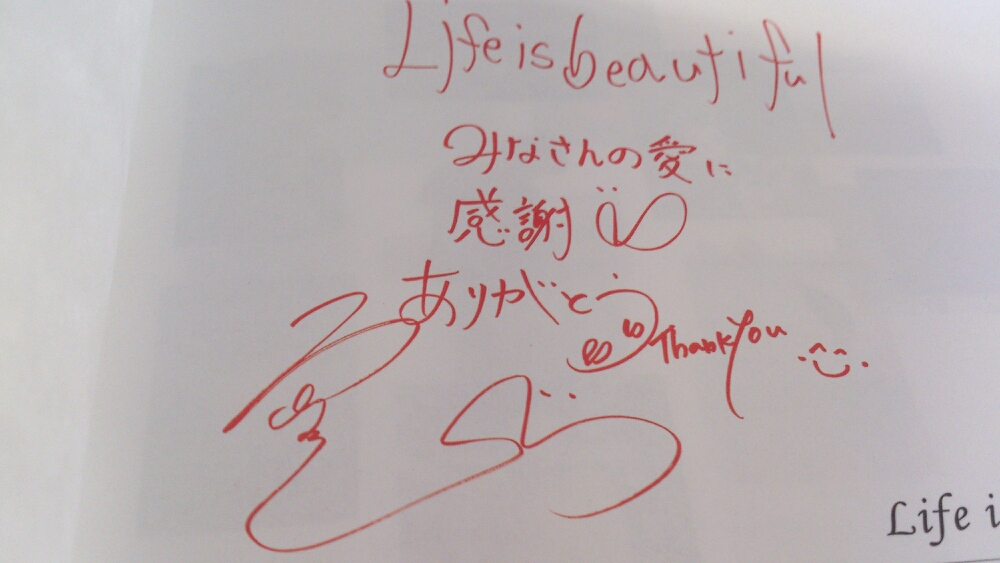 Life is beautiful
みなさんの愛に
感謝
ありがとう
Thank You
Life i